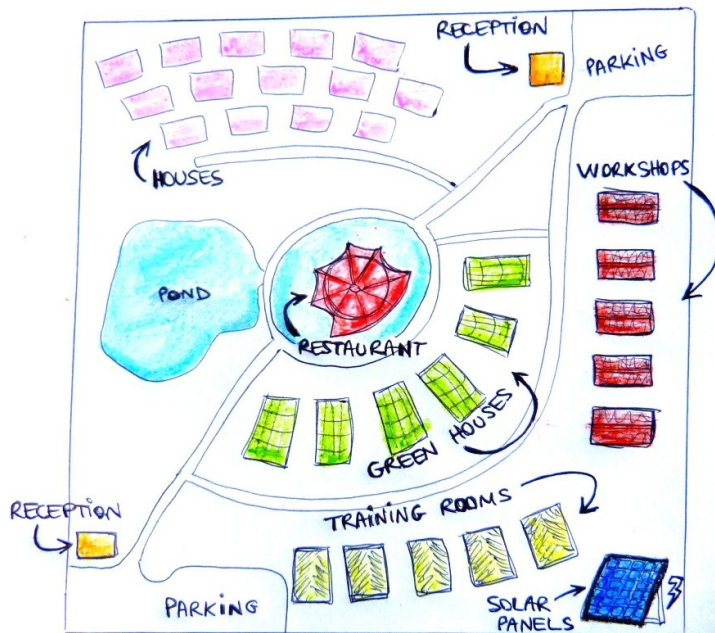 RECEPTION
PARKING
HOUSES
WORKSHOPS
POND
RESTAURANT
GREEN HOUSES
TRAINING ROOMS
RECEPTION
PARKING
SOLAR
PANELS